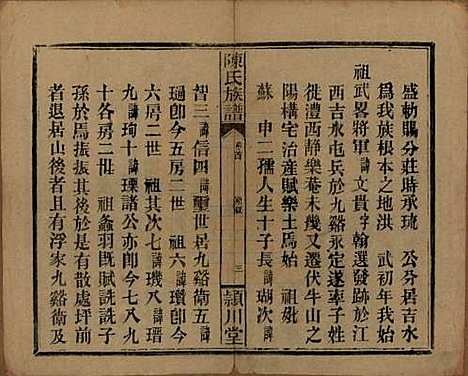 盛勅賜分莊時承琉　公分居吉水
為我族根本之地洪　武初年我始
祖武畧將軍諱文貴字翰選發跡於江
西吉水屯兵於九谿永定遂率子姓
徙澧西靜樂菴未幾又遷伏牛山之
陽構宅治產賦樂土焉始　祖妣
蘇　申二孺人生十子長諱瑚次諱
陳氏族譜
卷首
三
潁川堂
智三諱信四諱璽世居九谿衛五諱
璉卽今五房二世　祖六瓊卽今
六房二世　祖次七諱璣八諱瑨
九諱珣十諱瑧諸公亦卽今七八九
十各房二世　祖螽羽旣賦詵詵子
孫於焉振振其後於是有散處坪前
者退居山後者且有浮家九谿衛及